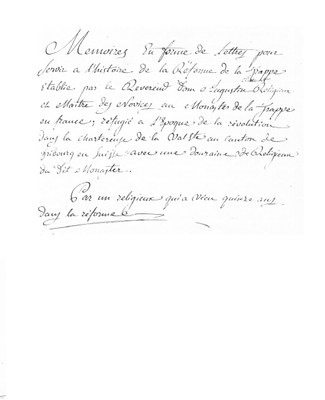 Memoires En forme de Lettres pour
servir a l'histoire de la Réforme de la Trappe
établie par le Reverend Dom Augustin Religieux
et Maître des Novices au Monastere de la Trappe
en france; réfugié a l'Epoque de la révolution
dans la chartreuse de la Valste au canton de
fribourg en Suisse avec une douzaine de Religieux
du dit Monaster..
Par un religieux qui a vécu quinze ans
dans la réforme